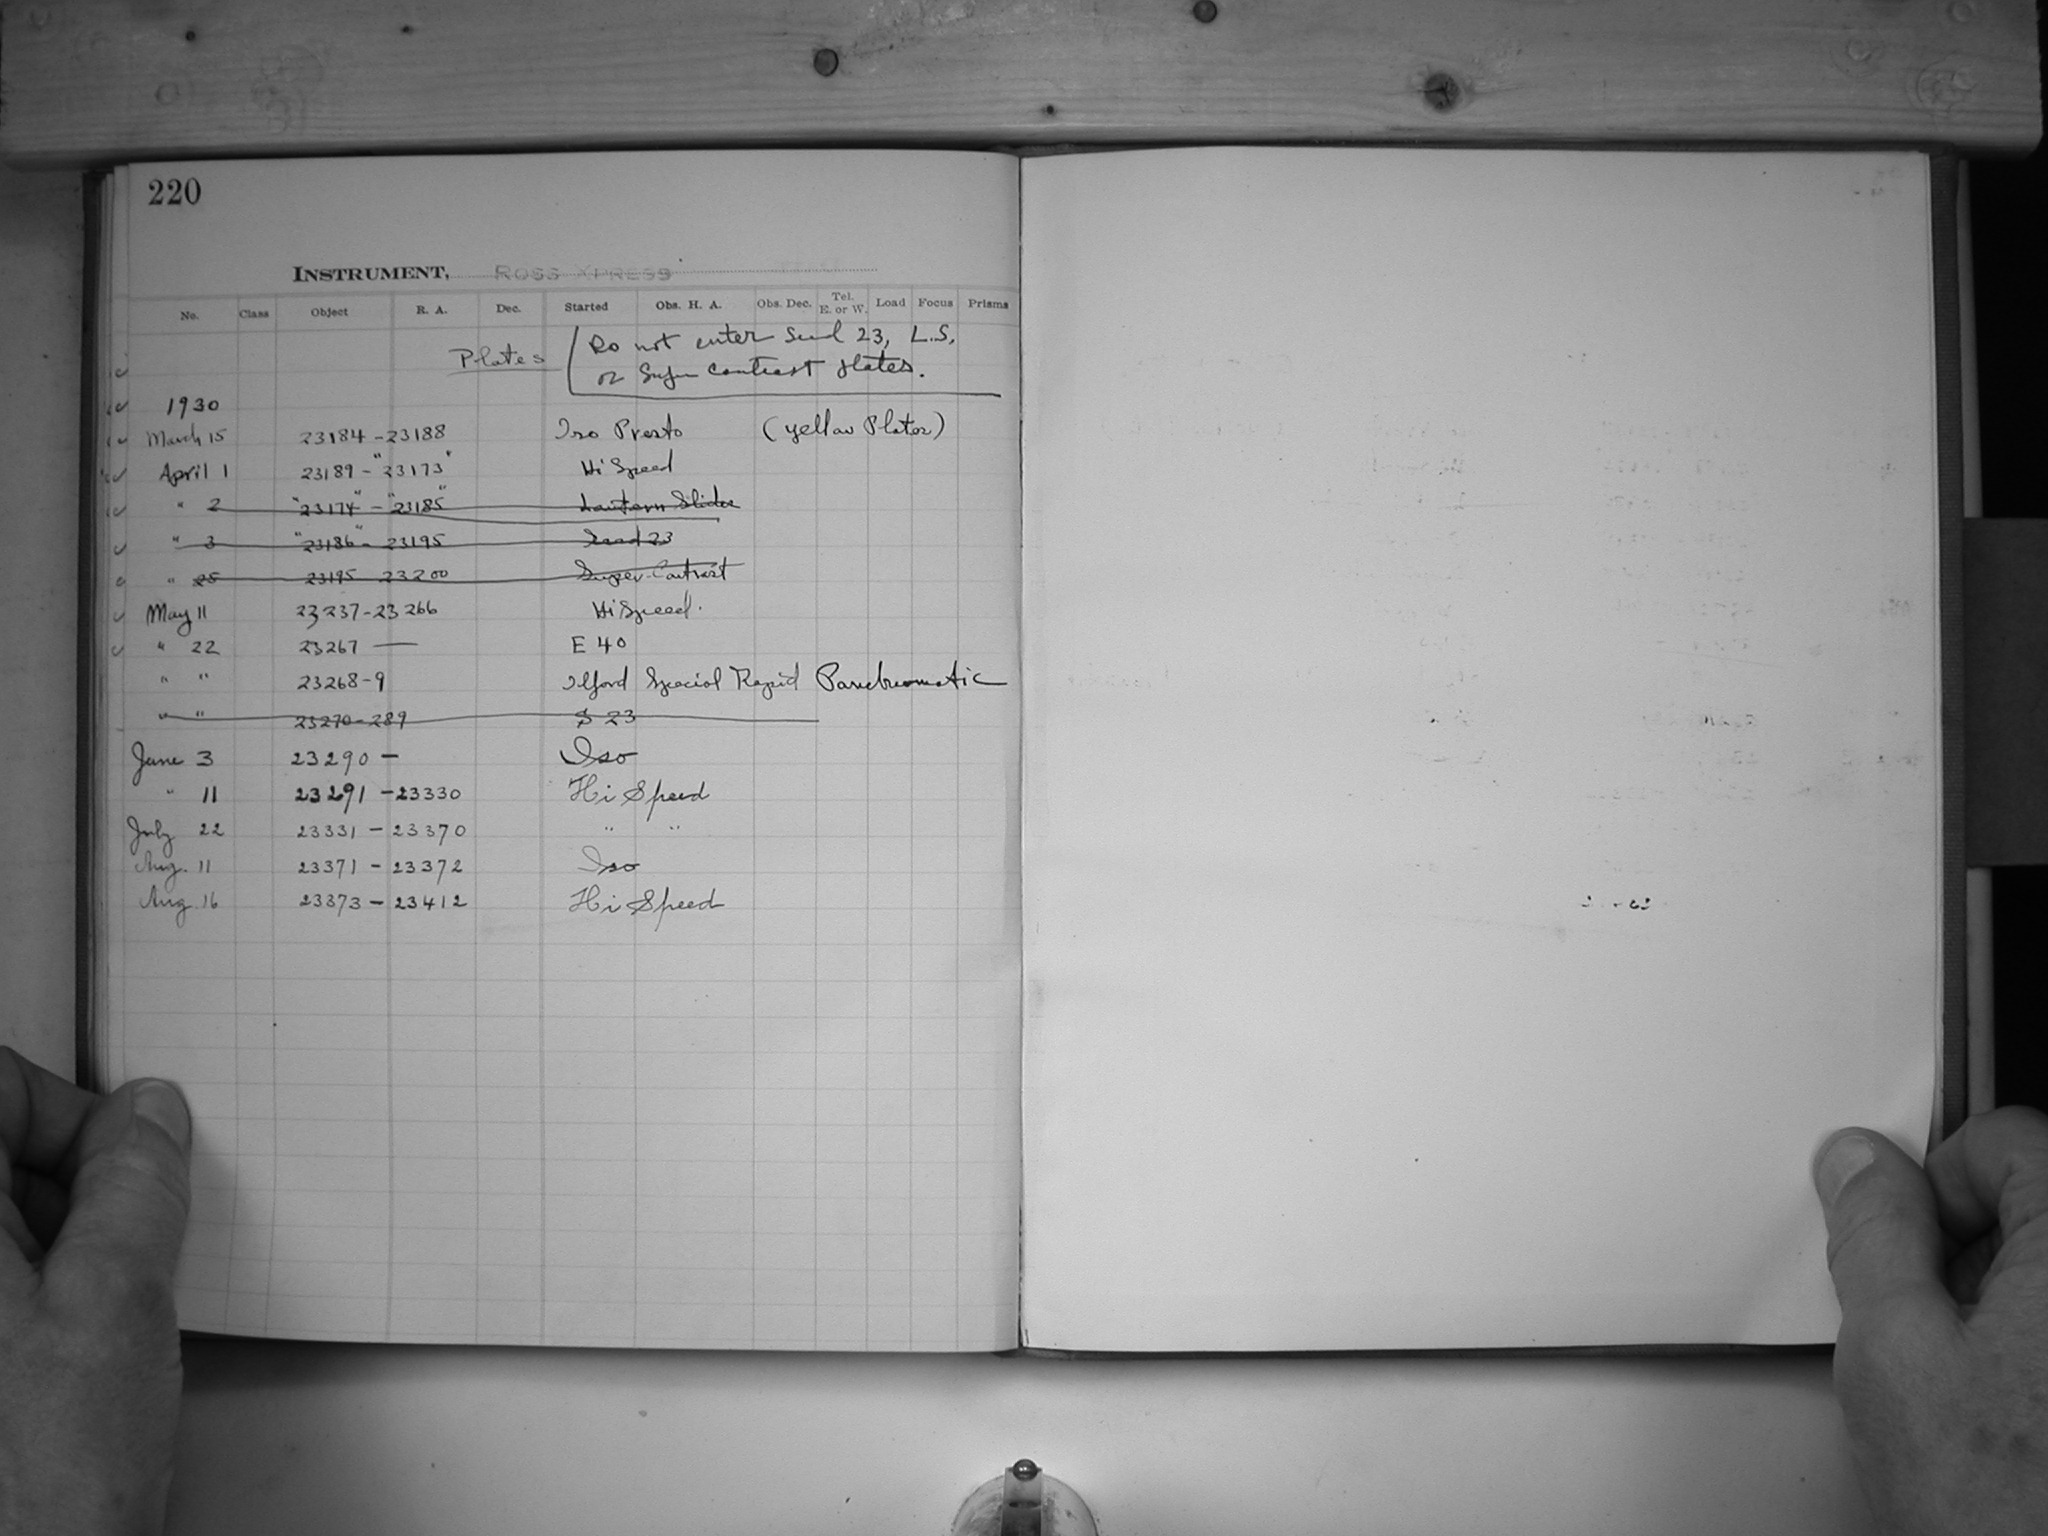 220
INSTRUMENT, ROSS XPRESS
No. Class Object R. A. Dec. Started Obs. H. A. Obs. Dec. Tel. E. or W. Load Focus Prisms
Plates Do not enter Seed 23, L.S,
or Super Contrast plates.
1930
March 15 23184 - 23188 Iso Presto (yellow Plates)
April 1 23189 - "23173" Hi Speed
" 2 "23174" - "23185" Lantern Slides
" 3 "23186" - 23195 Seed 23
" 25 23195 - 23200 Super-Contrast
May 11 23237-23266 Hi Speed.
" 22 23267 — E 40
" " 23268-9 Ilford Special Rapid Panchromatic
" " 23270-289 S 23
June 3 23290 - Iso
" 11 23291 - 23330 Hi Speed
July 22 23331 - 23370 " "
Aug. 11 23371 - 23372 Iso
Aug 16 23373 - 23412 Hi Speed